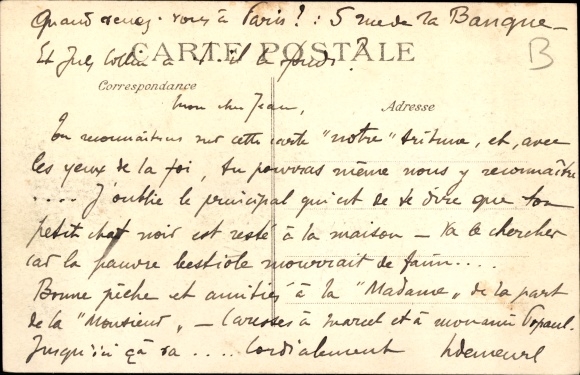 Quand venez-vous à Paris ? : 5 rue de la Banque -
CARTE POSTALE
Et Jules a-t-il le pied ?
B
Correspondance
Mon cher Jean,
Adresse
Tu reconnaîtras sur cette carte "notre" tribune, et, avec
les yeux de la foi, tu pourras même nous y reconnaître
.... J'oublie le principal qui est de te dire que ton
petit chat noir est resté à la maison - Va le chercher
car la pauvre bestiole mourrait de faim ....
Bonne pêche et amitiés à la "Madame" de la part
de la "Monsieur" - Caresses à Marcel et à mon ami Popaul.
Jusqu'ici ça va .... Cordialement